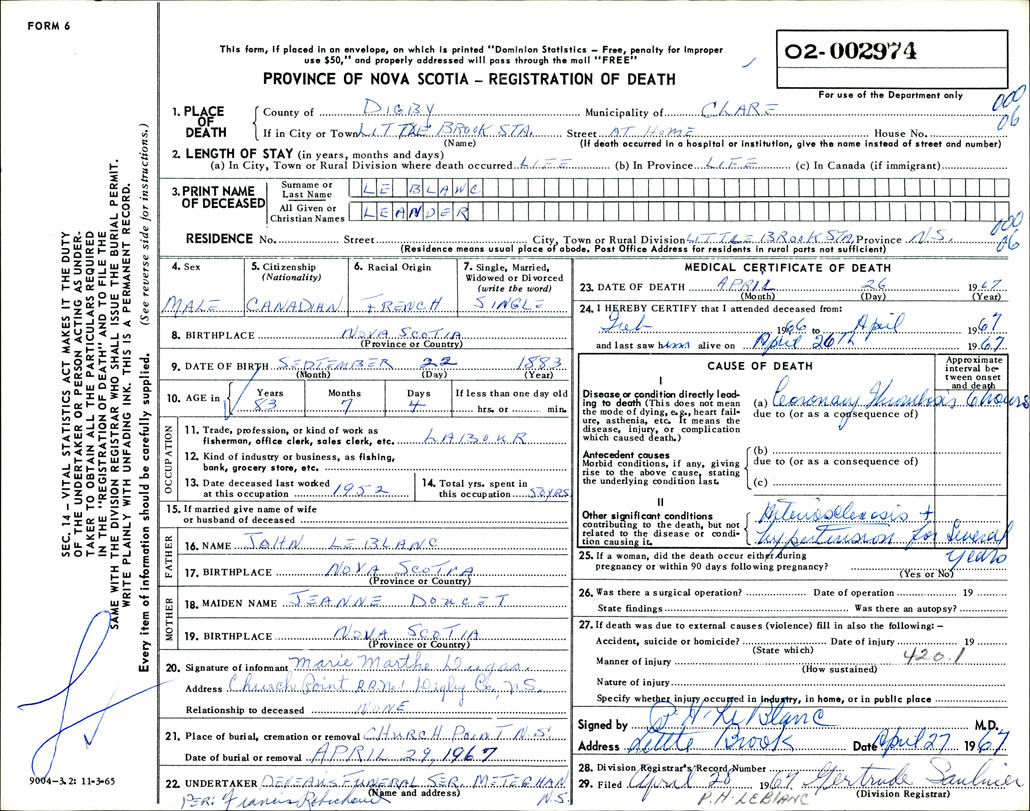 FORM 6
This form, if placed in an envelope, on which is printed "Dominion Statistics – Free, penalty for improper
use $50," and properly addressed will pass through the mail "FREE"
PROVINCE OF NOVA SCOTIA – REGISTRATION OF DEATH
02-002974
For use of the Department only
SEC. 14 – VITAL STATISTICS ACT MAKES IT THE DUTY
OF THE UNDERTAKER OR PERSON ACTING AS UNDER-
TAKER TO OBTAIN ALL THE PARTICULARS REQUIRED
IN THE "REGISTRATION OF DEATH" AND TO FILE THE
SAME WITH THE DIVISION REGISTRAR WHO SHALL ISSUE THE BURIAL PERMIT.
WRITE PLAINLY WITH UNFADING INK. THIS IS A PERMANENT RECORD.
Every item of information should be carefully supplied. (See reverse side for instructions.)
1. PLACE OF DEATH
County of DIGBY Municipality of CLARE
000
06
If in City or Town LITTLE BROOK STA. Street AT HOME House No.
(Name) (If death occurred in a hospital or institution, give the name instead of street and number)
2. LENGTH OF STAY (in years, months and days)
(a) In City, Town or Rural Division where death occurred LIFE (b) In Province LIFE (c) In Canada (if immigrant)
3. PRINT NAME OF DECEASED
Surname or Last Name LE BLANC
All Given or Christian Names LEANDER
000
06
RESIDENCE No. Street City, Town or Rural Division LITTLE BROOK STA. Province N.S.
(Residence means usual place of abode. Post Office Address for residents in rural parts not sufficient)
4. Sex
MALE
5. Citizenship (Nationality)
CANADIAN
6. Racial Origin
FRENCH
7. Single, Married, Widowed or Divorced (write the word)
SINGLE
8. BIRTHPLACE NOVA SCOTIA
(Province or Country)
9. DATE OF BIRTH SEPTEMBER 22 1883
(Month) (Day) (Year)
10. AGE in Years Months Days If less than one day old
83 7 4 hrs. or min.
OCCUPATION
11. Trade, profession, or kind of work as
fisherman, office clerk, sales clerk, etc. LABOKR
12. Kind of industry or business, as fishing,
bank, grocery store, etc.
13. Date deceased last worked
at this occupation 1952
14. Total yrs. spent in
this occupation 50YRS
15. If married give name of wife
or husband of deceased
FATHER
16. NAME JOHN LE BLANC
17. BIRTHPLACE NOVA SCOTIA
(Province or Country)
MOTHER
18. MAIDEN NAME JEANNE DOUCET
19. BIRTHPLACE NOVA SCOTIA
(Province or Country)
20. Signature of informant Marie Marthe Dugas
Address Church Point R.R. No 1 Digby Co., N.S.
Relationship to deceased NONE
21. Place of burial, cremation or removal CHURCH POINT N.S.
Date of burial or removal APRIL 29, 1967
22. UNDERTAKER DENEAU'S FUNERAL SER. METEGHAN
(Name and address) N.S.
PER: Francis Robicheau
9004–3.2: 11-3-65
MEDICAL CERTIFICATE OF DEATH
23. DATE OF DEATH APRIL 26 1967
(Month) (Day) (Year)
24. I HEREBY CERTIFY that I attended deceased from:
Feb 1966 to April 1967
and last saw him alive on April 26th 1967
CAUSE OF DEATH
Approximate interval between onset and death
I
Disease or condition directly lead-
ing to death (This does not mean
the mode of dying, e.g., heart fail-
ure, asthenia, etc. It means the
disease, injury, or complication
which caused death.)
(a) Coronary Thrombosis 6 hours
due to (or as a consequence of)
Antecedent causes
Morbid conditions, if any, giving
rise to the above cause, stating
the underlying condition last.
(b)
due to (or as a consequence of)
(c)
II
Other significant conditions
contributing to the death, but not
related to the disease or condi-
tion causing it.
Arteriosclerosis +
hypertension for Several
Years
25. If a woman, did the death occur either during
pregnancy or within 90 days following pregnancy?
(Yes or No)
26. Was there a surgical operation? Date of operation 19
State findings Was there an autopsy?
27. If death was due to external causes (violence) fill in also the following: –
Accident, suicide or homicide? Date of injury 19
(State which)
420.1
Manner of injury
(How sustained)
Nature of injury
Specify whether injury occurred in industry, in home, or in public place
Signed by P. H. LeBlanc M.D.
Address Little Brook Date April 27 1967
28. Division Registrar's Record Number
29. Filed April 28 1967 Gertrude Saulnier
(Division Registrar)
P.H. LEBLANC